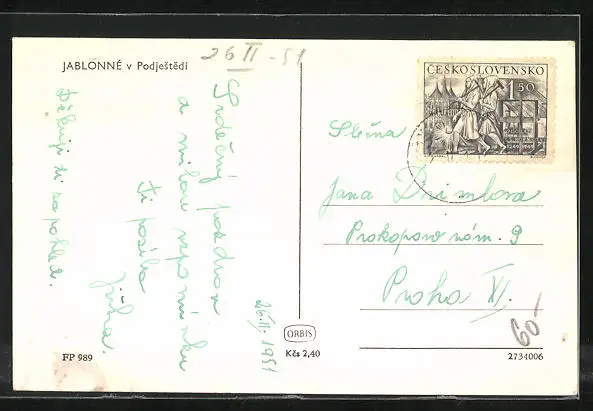 26 II - 51
JABLONNÉ v Podještědí
Srdečný pozdrav
a milou vzpomínku
Ti posílá
Jiřina.
Děkuji ti za pohled.
26.II. 1951
FP 989
ORBIS
Kčs 2,40
ČESKOSLOVENSKO
1.50
1249 1949
Slečna
Jana
Prokopovo nám. 9
Praha XI.
60
2734006